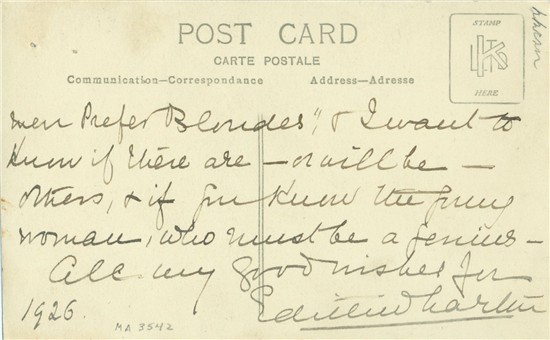 POST CARD
CARTE POSTALE
Communication—Correspondance Address—Adresse
STAMP
HERE
men Prefer Blondes", & I want to
know if there are — or will be —
others, & if you know the funny
woman, who must be a genius —
All my good wishes for
1926. Edith Wharton
MA 3542